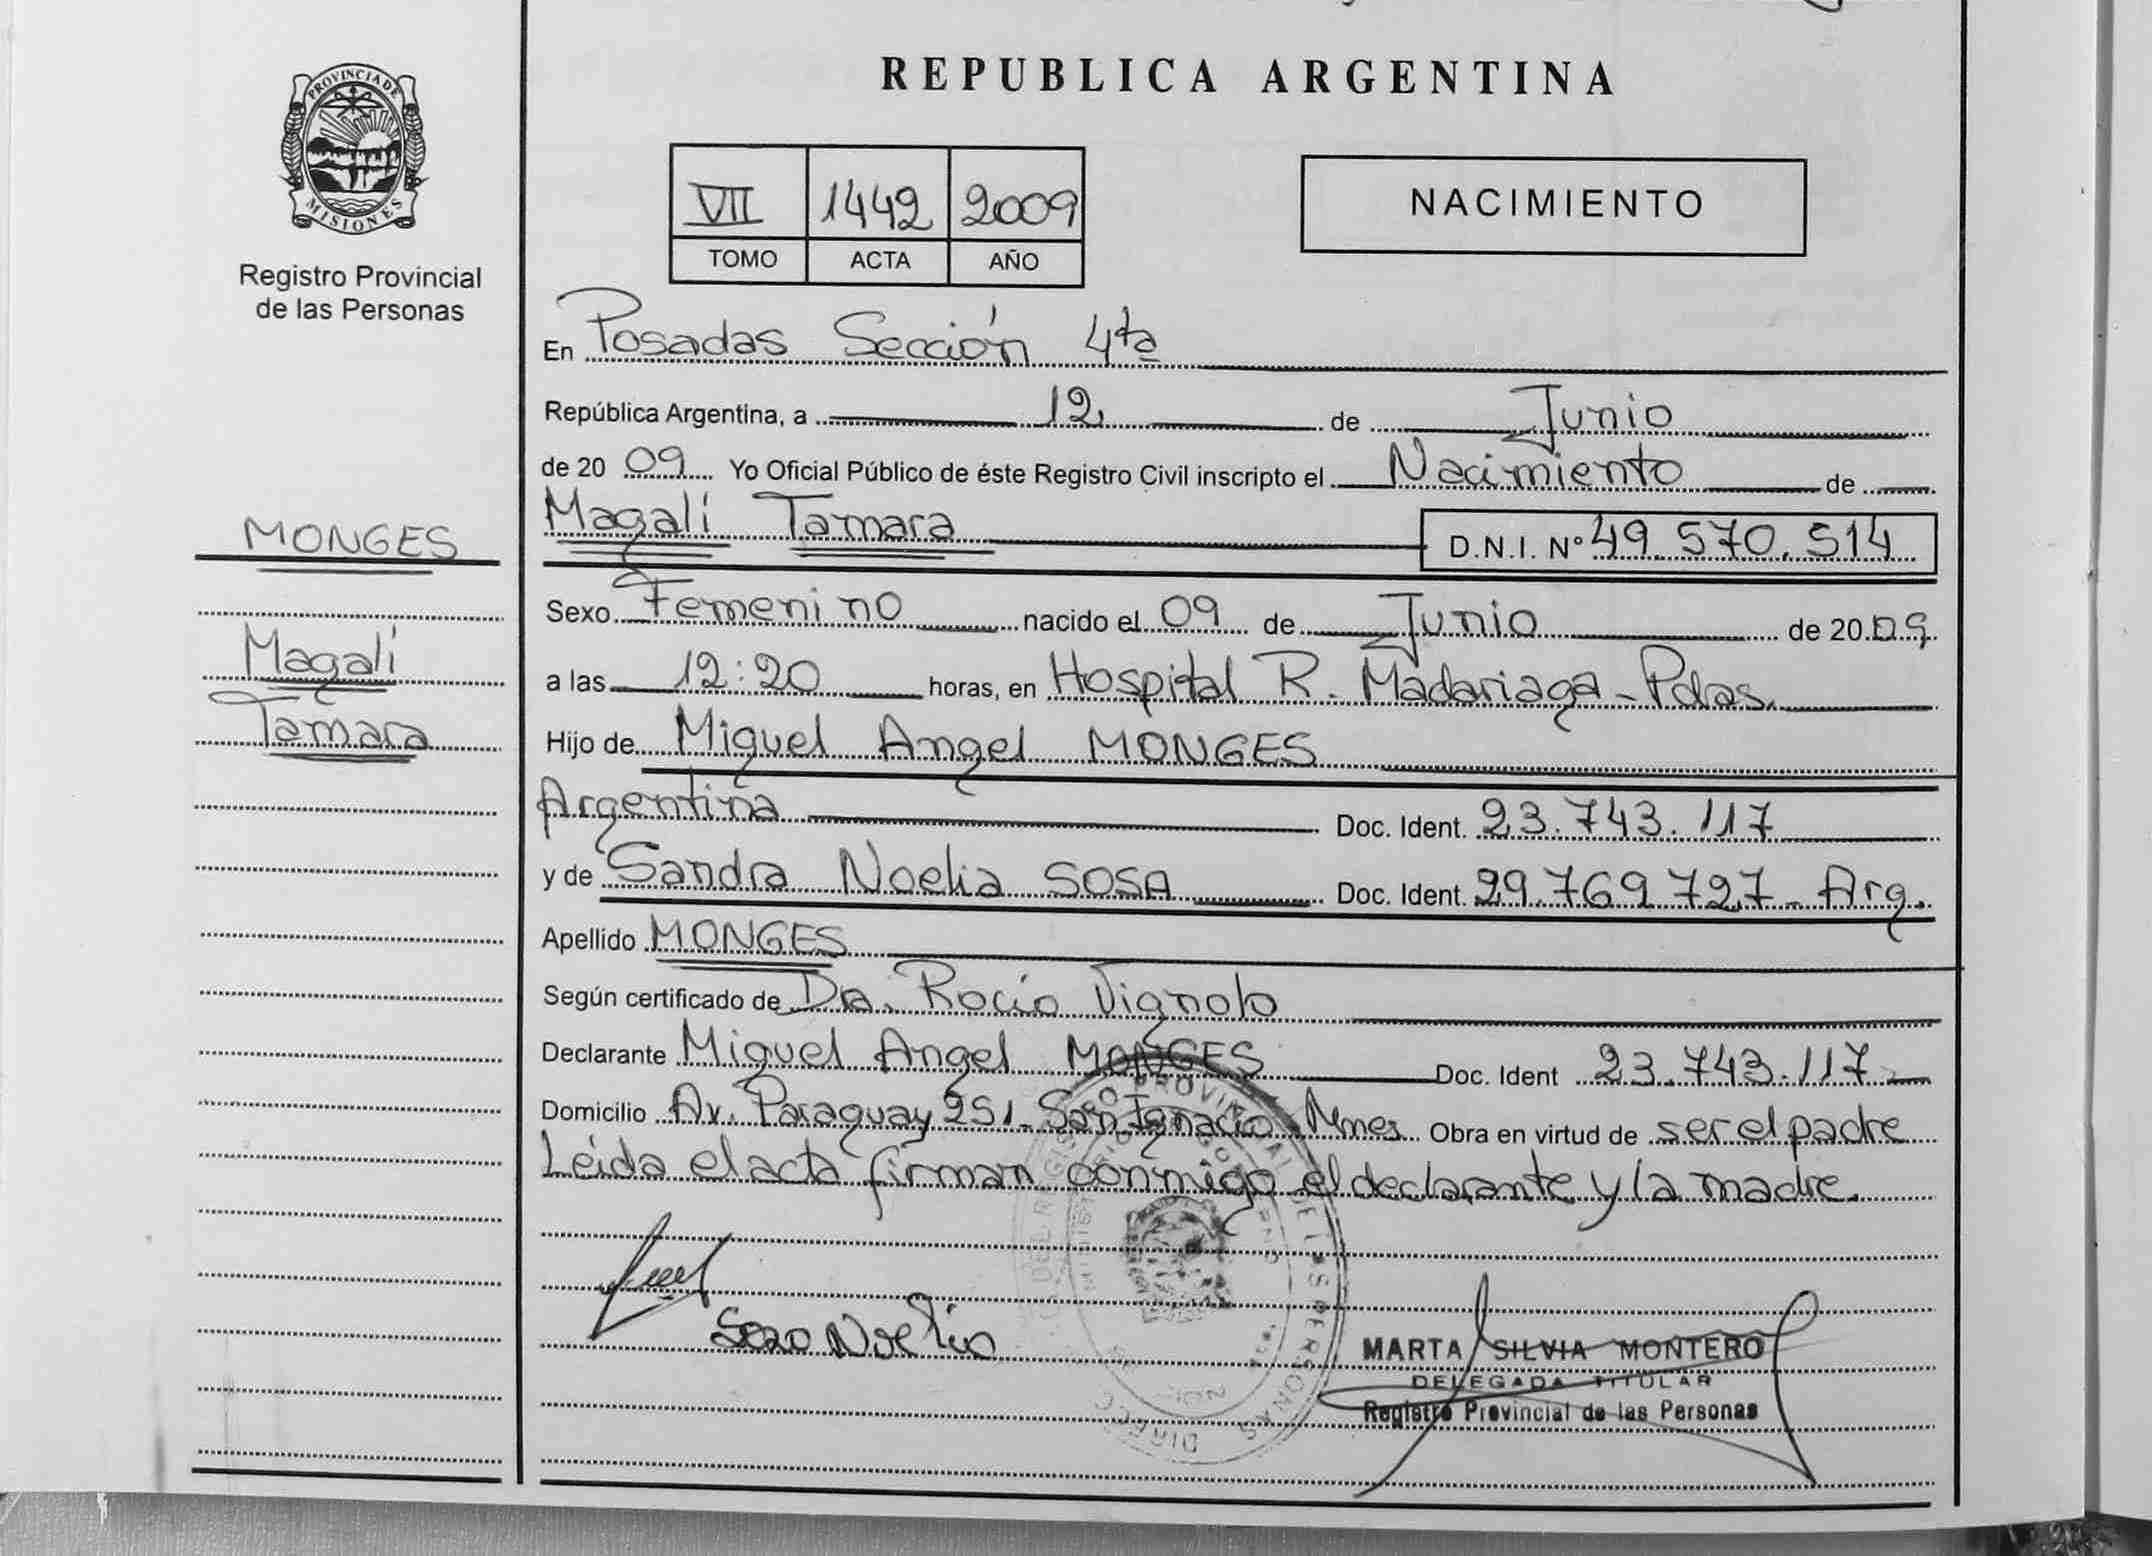 REPUBLICA ARGENTINA
PROVINCIA DE
MISIONES
Registro Provincial
de las Personas
VII 1442 2009
TOMO ACTA AÑO
NACIMIENTO
En Posadas Sección 4ta
República Argentina, a 12 de Junio
de 2009 Yo Oficial Público de éste Registro Civil inscripto el Nacimiento de
MONGES
Magalí Tamara D.N.I. Nº 49.570.514
Sexo Femenino nacido el 09 de Junio de 2009
Magalí
a las 12:20 horas, en Hospital R. Madariaga - Pdas.
Tamara
Hijo de Miguel Angel MONGES
Argentina Doc. Ident. 23.743.117
y de Sandra Noelia SOSA Doc. Ident. 29.769.727 - Arg.
Apellido MONGES
Según certificado de Dra. Rocío Vignolo
Declarante Miguel Angel MONGES Doc. Ident 23.743.117
Domicilio Av. Paraguay 251 - San Ignacio Mnes Obra en virtud de ser el padre
Leída el acta firman conmigo el declarante y la madre.
MARTA SILVIA MONTERO
DELEGADA TITULAR
Registro Provincial de las Personas